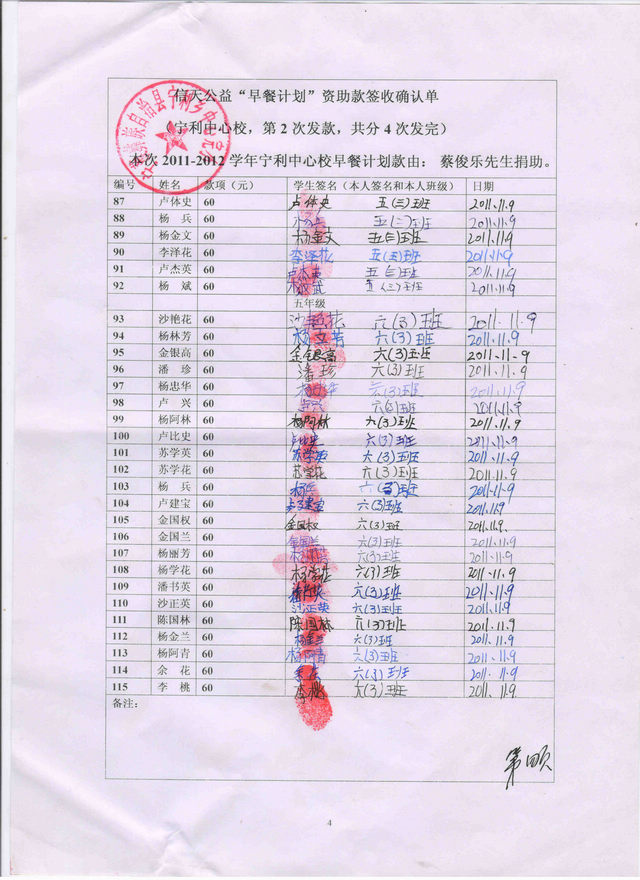 信天公益“早餐计划”资助款签收确认单
(宁利中心校，第 2 次发款，共分 4 次发完）
本次 2011-2012 学年宁利中心校早餐计划款由： 蔡俊乐先生捐助。
编号 姓名 款项（元） 学生签名（本人签名和本人班级） 日期
87 卢体史 60 卢体史 五(三)班 2011.11.9
88 杨 兵 60 五(三)班 2011.11.9
89 杨金文 60 杨金文 五(三)班 2011.11.9
90 李洋花 60 李泽花 五(三)班 2011.11.9
91 卢杰英 60 卢杰英 五(三)班 2011.11.9
92 杨 斌 60 五(三)班 2011.11.9
五年级
93 沙艳花 60 沙艳花 六(3)班 2011.11.9
94 杨林芳 60 六(3)班 2011.11.9
95 金银高 60 金银高 六(3)班 2011.11.9
96 潘 珍 60 潘珍 六(3)班 2011.11.9
97 杨忠华 60 六(3)班 2011.11.9
98 卢 兴 60 卢兴 六(3)班 2011.11.9
99 杨阿林 60 杨阿林 六(3)班 2011.11.9
100 卢比史 60 卢比史 六(3)班 2011.11.9
101 苏学英 60 苏学英 六(3)班 2011.11.9
102 苏学花 60 苏学花 六(3)班 2011.11.9
103 杨 兵 60 杨兵 六(3)班 2011.11.9
104 卢建宝 60 卢建宝 六(3)班 2011.11.9
105 金国权 60 金国权 六(3)班 2011.11.9.
106 金国兰 60 金国兰 六(3)班 2011.11.9
107 杨丽芳 60 六(3)班 2011.11.9
108 杨学花 60 杨学花 六(3)班 2011.11.9
109 潘书英 60 潘书英 六(3)班 2011.11.9
110 沙正英 60 沙正英 六(3)班 2011.11.9
111 陈国林 60 陈国林 六(3)班 2011.11.9
112 杨金兰 60 杨金兰 六(3)班 2011.11.9
113 杨阿青 60 杨阿青 六(3)班 2011.11.9
114 余 花 60 余花 六(3)班 2011.11.9
115 李 桃 60 李桃 六(3)班 2011.11.9.
备注：
第四页
4